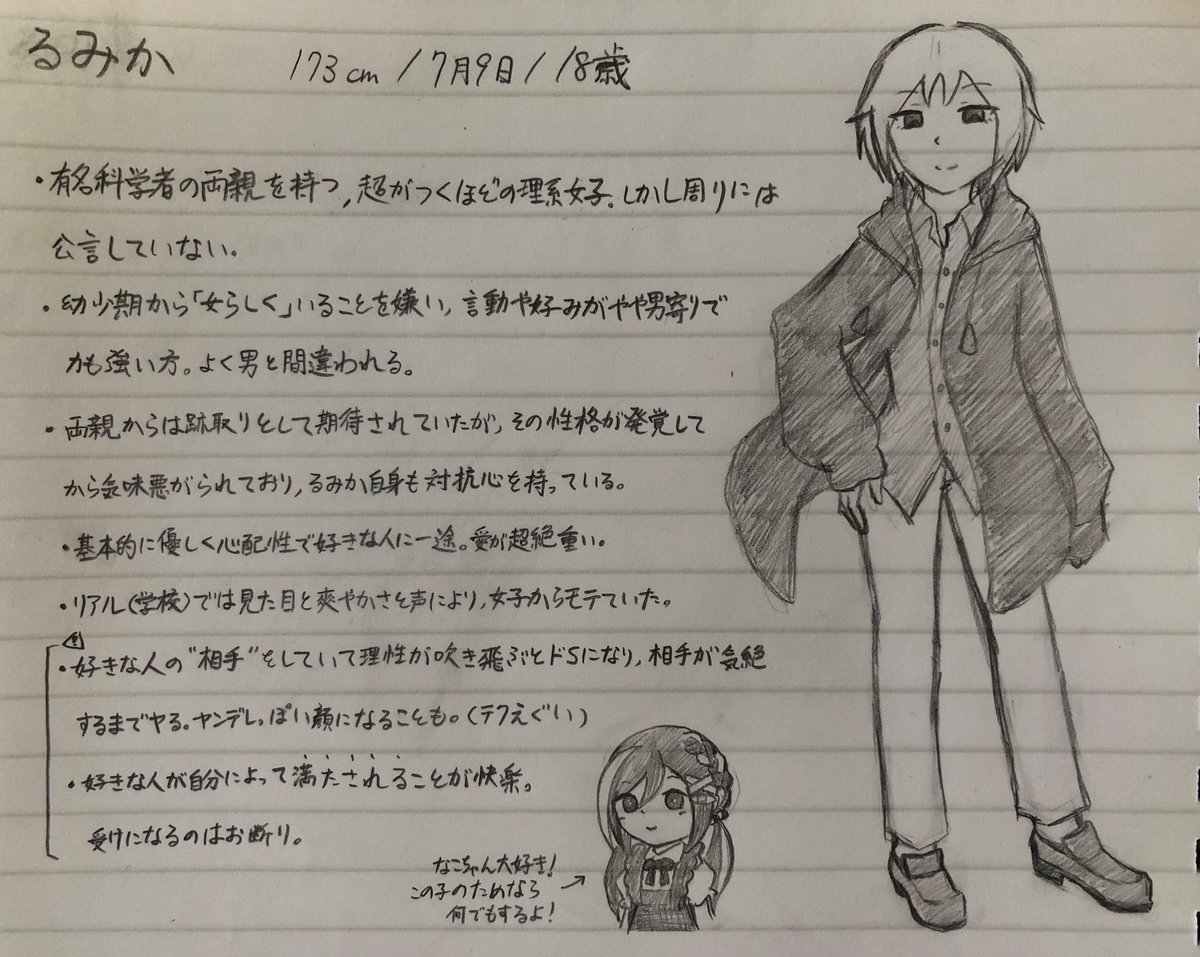 るみか
173cm / 7月9日 / 18歳
・有名科学者の両親を持つ,超がつくほどの理系女子.しかし周りには
公言していない。
・幼少期から「女らしく」いることを嫌い,言動や好みがやや男寄りで
力も強い方。よく男と間違われる。
・両親からは跡取りとして期待されていたが,その性格が発覚して
から気味悪がられており,るみか自身も対抗心を持っている。
・基本的に優しく心配性で好きな人に一途。愛が超絶重い。
・リアル(学校)では見た目と爽やかさと声により,女子からモテていた。
・好きな人の"相手"をしていて理性が吹き飛ぶとドSになり,相手が気絶
するまでヤる。ヤンデレっぽい顔になることも。(テクえぐい)
・好きな人が自分によって満たされることが快楽。
受けになるのはお断り。
なこちゃん大好き!
この子のためなら
何でもするよ!